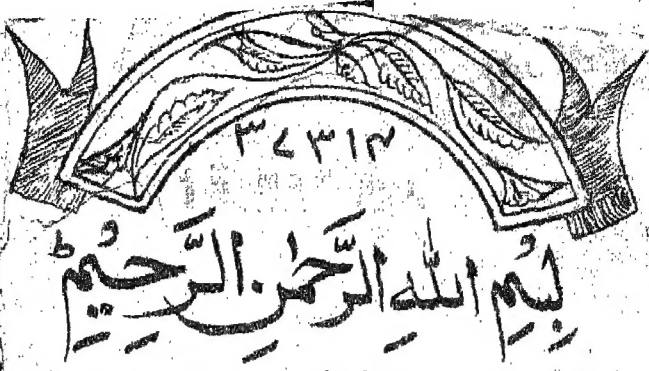 ۳۷۳۱۴
بِسْمِ اللّٰهِ الرَّحْمٰنِ الرَّحِيْمِؕ